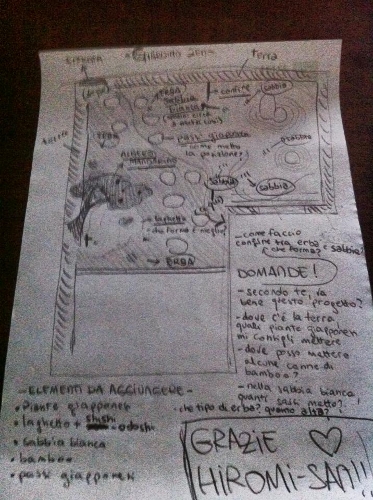 Giardino zen
terra
terra
ERBA
sabbia
bianca
confine
sabbia
passi giapponesi
come metto
la posizione?
ERBA
ALBERO
MANDARINO
sabbia
che forma è meglio?
→ ERBA
- come faccio
confine tra erba e sabbia?
che forma?
DOMANDE!
- secondo te, va
bene questo progetto?
- dove c'è la terra
quali piante giapponesi
mi consigli mettere
- dove posso mettere
alcune canne di
bamboo?
- nella sabbia bianca
quanti sassi metto?
- che tipo di erba? quanto alta?
- ELEMENTI DA AGGIUNGERE -
• piante giapponesi
• laghetto + shishi
- odoshi
• sabbia bianca
• bamboo
• passi giapponesi
GRAZIE ♡
HIROMI-SAN!!